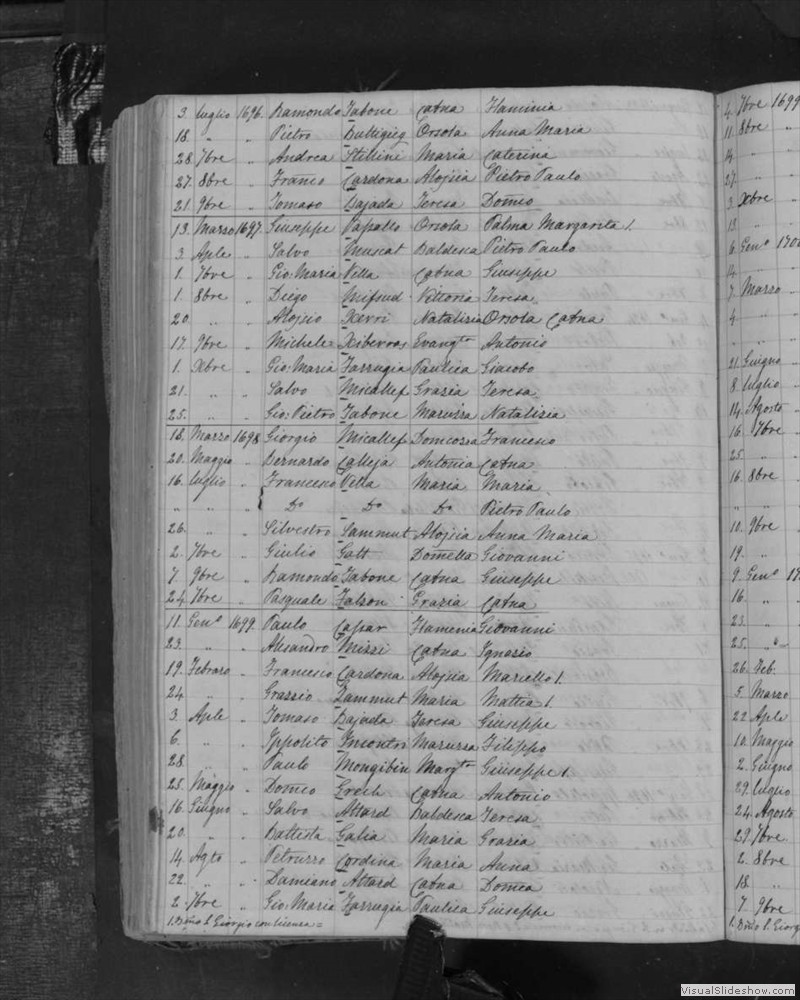 3. Luglio 1696. Ramondo Tabone Catna Flaminia
18. " " Pietro Buttigieg Orsola Anna Maria
28. 7bre " Andrea Stillini Maria Caterina
27. 8bre " Franco Cardona Alojsia Pietro Paulo
21. 9bre " Tomaso Bajada Teresa Domco
13. Marzo 1697. Giuseppe Vapallo Orsola Palma Margarita 1.
3 Aple " Salvo Muscat Baldesca Pietro Paulo
1. 7bre " Gio: Maria Vella Catna Giuseppe
1. 8bre " Diego Mifsud Vittoria Teresa
20. " " Alojsio Xerri Natalizia Orsola Catna
17. 9bre " Michele Xiberras Evangta Antonio
1. Xbre " Gio: Maria Farrugia Paulica Giacobo
21. " " Salvo Micallef Grazia Teresa
25. " " Gio: Pietro Tabone Maruzza Natalizia
18. Marzo 1698 Giorgio Micallef Domicosia Francesco
20. Maggio " Bernardo Calleja Antonia Catna
16. Luglio " Francesco Vella Maria Maria
" " " Do Do Do Pietro Paulo
26. " " Silvestro Sammut Alojsia Anna Maria
2. 7bre " Giulio Gatt Dometta Giovanni
7. 9bre " Ramondo Tabone Catna Giuseppe
24 Xbre " Pasquale Falzon Grazia Catna
11. Geno 1699. Paulo Caspar Flamenia Giovanni
23. " " Alesandro Mizzi Catna Ignazio
19. Febraro " Francesco Cardona Alojsia Mariello 1.
24 " " Grazzio Zammut Maria Mattia 1.
3. Aple " Tomaso Bajada Teresa Giuseppe
6. " " Ippolito Incontri Maruzza Filippo
28. " " Paulo Mongibin Margta Giuseppe 1.
25. Maggio " Domco Grech Catna Antonio
16. Giugno " Salvo Attard Baldesca Teresa
20. " " Battista Galia Maria Grazia
14. Agto " Petruzzo Cordina Maria Anna
22. " " Damiano Attard Catna Domca
2. 7bre " Gio: Maria Farrugia Paulica Giuseppe
1. Bmo S. Giorgio con licenza =
4. 7bre 1699
11. 8bre "
14. "
27. "
3. Xbre "
13. "
6. Geno 170
14. "
7. Marzo "
4 "
"
21. Giugno
8. Luglio
14. Agosto
16. 7bre
25. "
16. 8bre
10. 9bre
19. "
9. Geno 17
16. "
23. "
25. "
26. Feb.
5. Marzo
22. Aple
10. Maggio
2. Giugno
29. Luglio
24. Agosto
29. 7bre
2. 8bre
18. "
7. 9bre
1. Bmo S. Giorg
VisualSlideshow.com